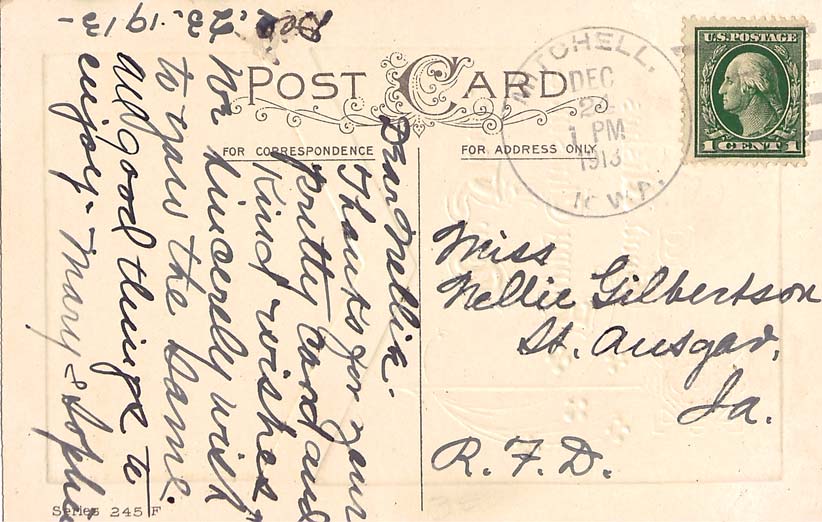 Dec. 23. 1913-
POST CARD
FOR CORRESPONDENCE
FOR ADDRESS ONLY
U.S. POSTAGE
1 CENT 1
MITCHELL,
DEC
1 PM
1913
IOWA
Dear Nellie.
Thanks for your
pretty card and
Kind wishes
We sincerely wish
to you the same.
All good things to
enjoy- Mary & Sophie
Miss
Nellie Gilbertson
St. Ansgar,
Ia.
R. F. D.
Series 245 F